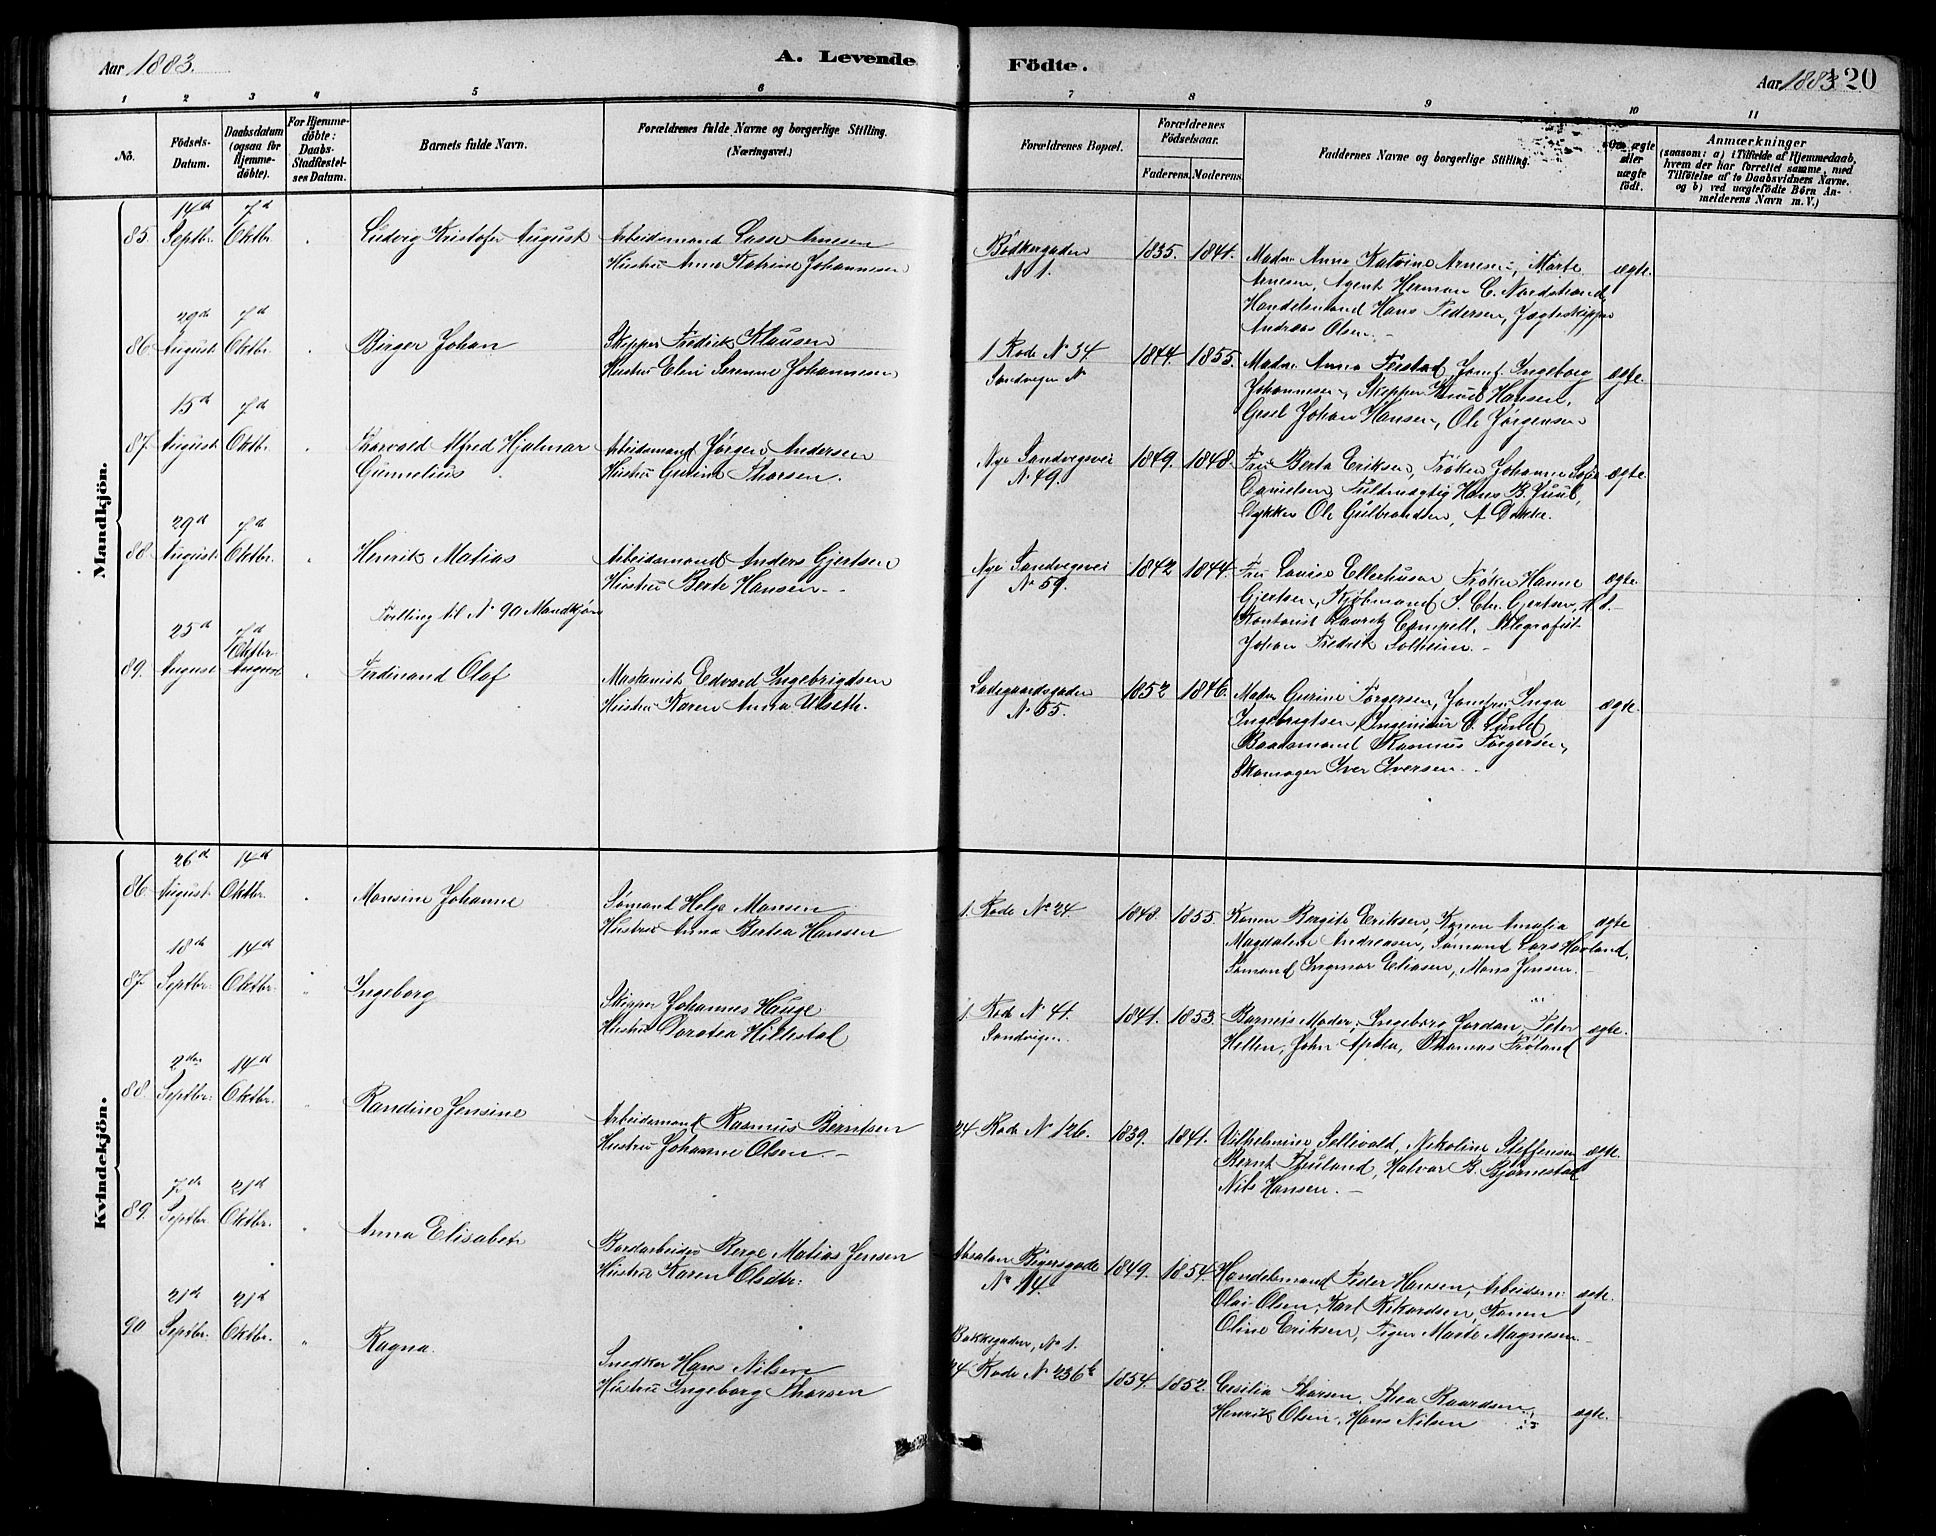 Aar 1883.
A. Levende Födte.
Aar 1883 120
1 2 3 4 5 6 7 8 9 10 11
No.
Födsels-Datum.
Daabsdatum (ogsaa for Hjemme-döbte).
For Hjemme-döbte: Daabs-Stadfæstel-ses Datum.
Barnets fulde Navn.
Forældrenes fulde Navne og borgerlige Stilling. (Næringsvei.)
Forældrenes Bopæl.
Forældrenes Födselsaar.
Faderens. Moderens.
Faddernes Navne og borgerlige Stilling.
Om ægte eller uægte födt.
Anmærkninger
(saasom: a) i Tilfælde af Hjemmedaab, hvem der har forrettet samme, med Tilföielse af to Daabsvidners Navne. og b) ved uægtefödte Börn An-melderens Navn m. V.)
Mandkjön.
85. 14d Septbr. 7d Oktbr. Ludvig Kristofer August
Arbeidsmand Lasse Arnesen
Hustru Anna Katrine Johannesen
Bödkergaden N 1. 1835. 1841.
Madm Anna Katrine Arnesen, Marte
Arnesen, Agent Herman C. Nordstrand,
Handelsmand Hans Pedersen, Jægteskipper
Andreas Olsen.
ægte.
86. 29d August 7d Oktbr. Birger Johan
Skipper Fredrik Klausen
Hustru Elen Serenne Johannesen
1 Rode N 34
Sandvigen N
1844. 1855.
Madm Anna Feistad, Jomf. Ingeborg
Johannesen, Skipper Knud Hansen,
Gesel Johan Hansen, Ole Jørgensen
ægte.
87. 15d August 7d Oktbr. Thorvald Alfred Hjalmar
Gunnelius
Arbeidsmand Jørgen Andersen
Hustru Gurine Thorsen.
Nye Sandvigsvei
N 49.
1849. 1848.
Fru Berta Eriksen, Frøken Johanne Sofie
Danielsen, Fuldmægtig Hans B. Juul,
Stykker Ole Gulbrandsen, A Dekke.
ægte.
88. 29d August 7d Oktbr. Henrik Matias
Arbeidsmand Anders Gjertsen
Hustru Berte Hansen.
Tvilling til N 90 Mandkjøn
Nye Sandvigsvei
N 59.
1842 1844.
Fru Lovise Ellerhusen Frøken Hanne
Gjertsen, Kjøbmand S. Chr. Gjertsen, H. 1.
Kontorist Laurits Campell, Telegrafist
Johan Fredrik Solheim.
ægte
89. 25d August 7d Oktbr. August Ferdinand Olaf
Maskinist Edvard Ingebrigdsen
Hustru Karen Anna Ulseth.
Ladegaardsgaden
N 55.
1852 1846.
Madm Gurine Torgersen, Jomfru Inga
Ingebrigtsen, Ingeniør C. Lund,
Baadsmand Rasmus Torgersen,
Skomager Iver Iversen.
ægte.
Kvindekjön.
86. 26d August 14d Oktbr. Monsine Johanne
Sømand Helge Monsen
Hustru Anna Bertea Hansen
1. Rode No 24 1848. 1855.
Konen Bergite Eriksen, Konen Amalia
Magdalene Andreasen, Sømand Lars Havland,
Sømand Ingmar Eliasen, Mons Jensen.
ægte
87. 18d Septbr. 14d Oktbr. Ingeborg
Skipper Johannes Hauge
Hustru Doratea Hillestal
1. Rode N 41.
Sandvigen.
1841. 1853.
Barnets Moder, Ingeborg Jordan, Peter
Hellen, John Apelen, Thomas Frøland
ægte.
88. 2den Septbr. 14d Oktbr. Randine Jensine
Arbeidsmand Rasmus Berntsen
Hustru Johanne Olsen
24 Rode N 126. 1839. 1841.
Vilhelmine Sellevold, Nikoline Steffensen
Bernt Fjeuland, Halvor B. Bjørnestad
Nils Hansen.
ægte.
89. 7de Septbr. 21d Oktbr. Anna Elisabet
Bordarbeider Berge Matias Jensen
Hustru Karen Olsdtr.
Absalon Beyersgade
No 14.
1849. 1854.
Handelsmand Peder Hansen, Arbeidsm:
Olai Olsen, Karl Rikardsen, Konen
Oline Eriksen, Pigen Marte Magnesen
ægte.
90 21d Septbr. 21d Oktbr. Ragna.
Snedker Hans Nilsen
Hustru Ingeborg Thorsen
Bakkegaden, No 1.
24 Rode N 236b 1854. 1852.
Cesilia Thorsen, Thea Baardsen
Henrik Olsen, Hans Nilsen
ægte.